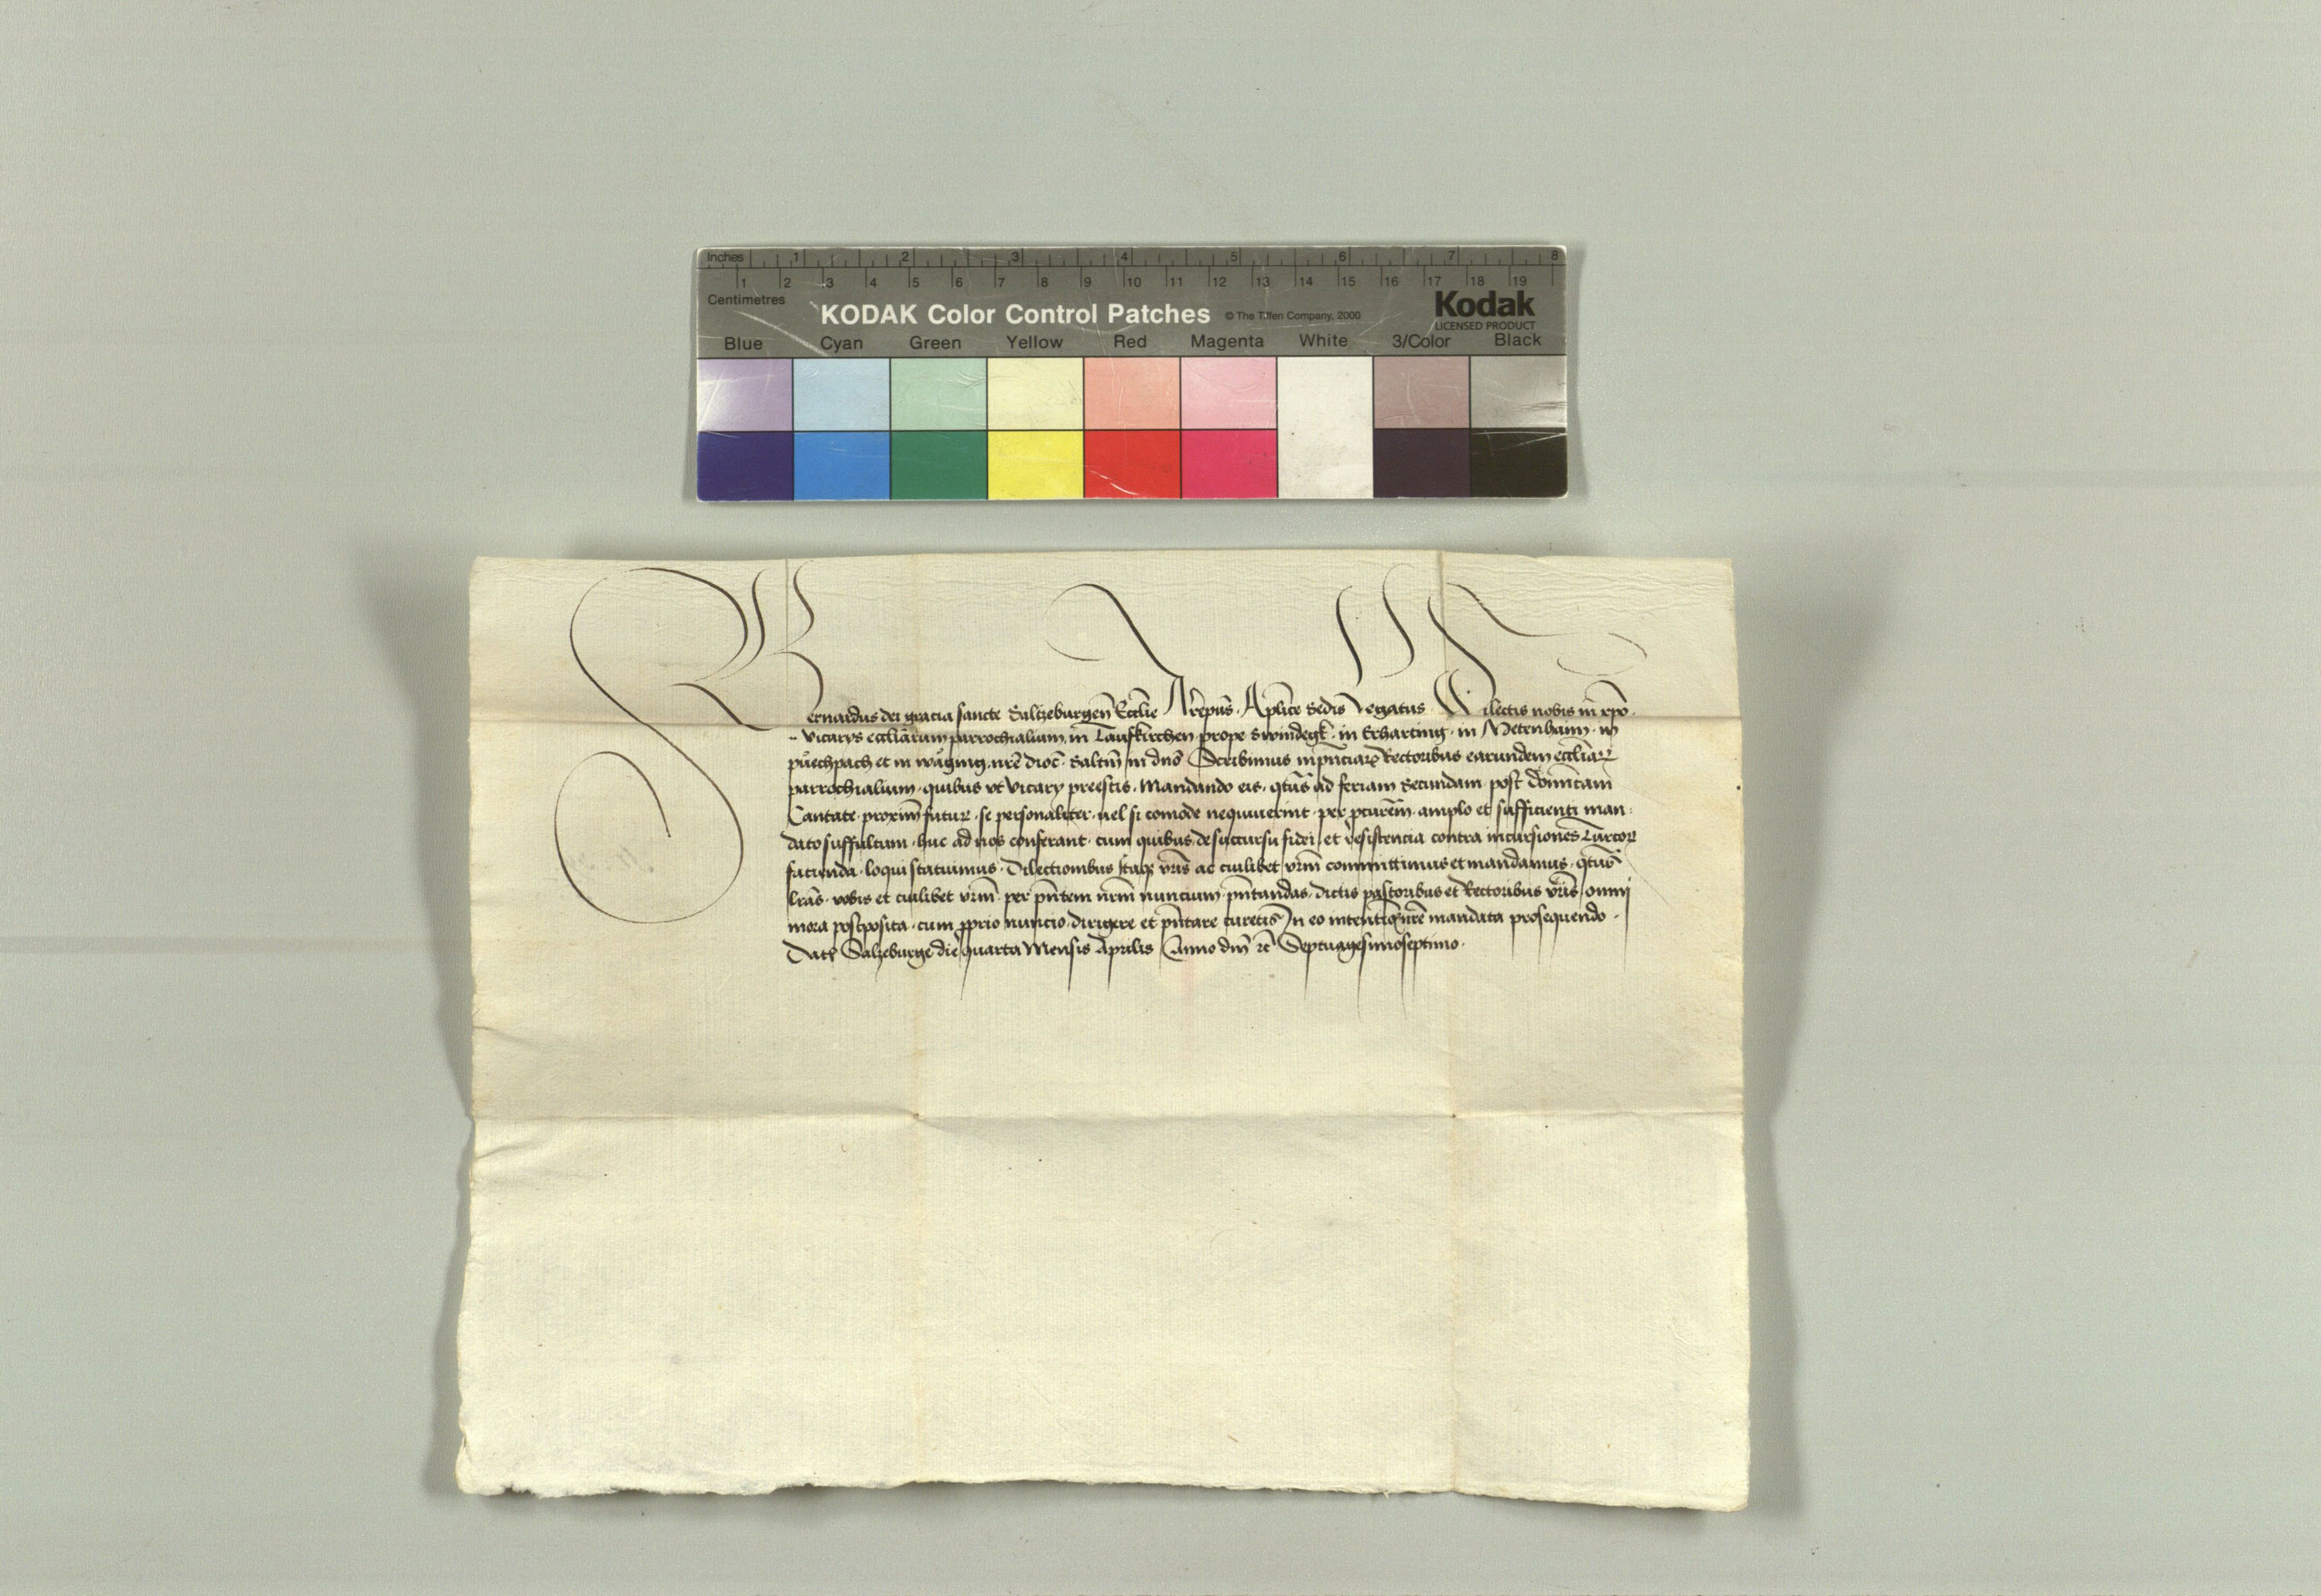 Inches 1 2 3 4 5 6 7 8
1 2 3 4 5 6 7 8 9 10 11 12 13 14 15 16 17 18 19
Centimetres
KODAK Color Control Patches © The Tiffen Company, 2000 Kodak
LICENSED PRODUCT
Blue Cyan Green Yellow Red Magenta White 3/Color Black
Bernardus dei gracia sancte Saltzeburgeñ Eccl̄ie Ar̄epus̄ · Apl̄ice Sedis Legatus · Dilectis nobis in xp̄o ·
·· Vicarys eccl̄iarum parrochialium, in Laufkirchen prope Swindegk̄ · in Erharting · in Metenhaim · in
půechpach et in wåging, nr̄e dioc̄ · Saltm̄ in dn̄o Scribimus inpn̄ciaꝝ Rectoribus earundem eccl̄iaꝝ
parrochialium · quibus vt vicary preestis · Mandando eis · qt̄us ad feriam Secundam · post Domīcam
Cantate · proxim̄ futuꝝ · se personaliter · uel si comode nequiuerint · per pcur̄em̄ · amplo et sufficienti man-
dato suffultum · huc ad nos conferant · cum quibus de succursu fidei et resistencia contra incursiones Turcoꝝ
facienda · loqui statuimus · Dilectionibus Itaqꝫ vr̄is ac cuilibet vr̄m̄ committimus et mandamus · qt̄us
lr̄as · vobis et cuilibet vr̄m̄ · per pn̄tem nr̄m nuncium · pn̄tandas · dictis pastoribus et Rectoribus vr̄is omni
mora postposita · cum pprio nuncio · dirigere et pn̄tare curetis In eo nr̄e mandata prosequendo ·
Dat̄ Salzeburge die quarta Mensis Aprilis Anno dn̄i ꝛc̄ Septuagesimoseptimo ·